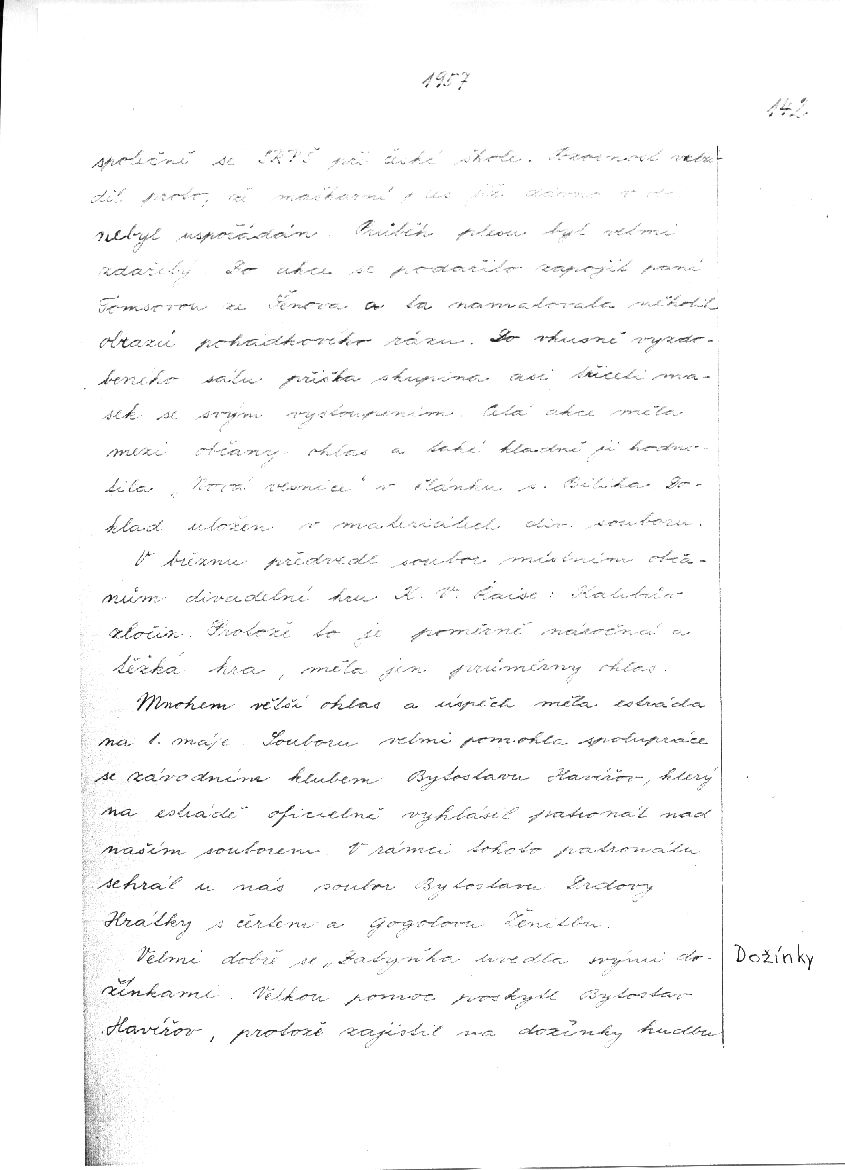 1957
142
společně se SRPŠ při české škole. Pozornost vzbu-
dil proto, že maškarní ples již dávno
nebyl uspořádán. Průběh plesu byl velmi
zdařilý. Do akce se podařilo zapojit paní
Tomsovou ze Žňova a ta namalovala několik
obrazů pohádkového rázu. Do vkusně vyzdo-
beného sálu přišla skupina asi třiceti ma-
sek se svým vystoupením. Celá akce měla
mezi občany ohlas a také kladně ji hodno-
tila „Nová vesnice" v článku s. Bílka. Do-
klad uložen v materiálech div. souboru.
V březnu předvedl soubor místním obča-
nům divadelní hru K. V. Raise: Kalibův
zločin. Protože to je poměrně náročná a
těžká hra, měla jen průměrný ohlas.
Mnohem větší ohlas a úspěch měla estráda
na 1. máje. Souboru velmi pomohla spolupráce
se závodním klubem Bytostavu Havířov, který
na estrádě oficielně vyhlásil patronát nad
naším souborem. V rámci tohoto patronátu
sehrál u nás soubor Bytostavu Drdovy
Hrátky s čertem a Gogolovu Ženitbu.
Velmi dobře se uvedla svými do-
žínkami. Velkou pomoc poskytl Bytostav
Havířov, protože zajistil na dožínky hudbu
Dožínky